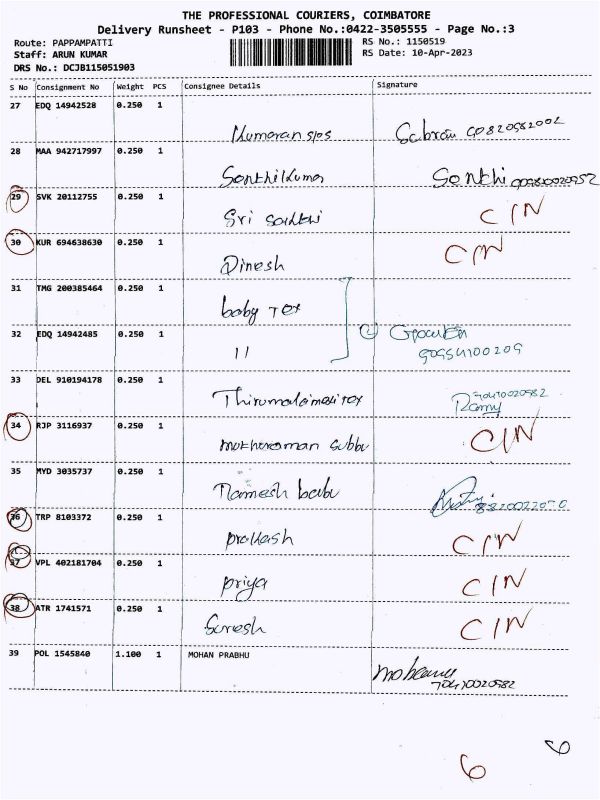 THE PROFESSIONAL COURIERS, COIMBATORE
Delivery Runsheet - P103 - Phone No.:0422-3505555 - Page No.:3
Route: PAPPAMPATTI RS No.: 1150519
Staff: ARUN KUMAR RS Date: 10-Apr-2023
DRS No.: DCJB115051903
S No Consignment No Weight PCS Consignee Details Signature
27 EDQ 14942528 0.250 1
Kumaran
28 MAA 942717997 0.250 1
Senthilkumar Senthi
29 SVK 20112755 0.250 1
Sri Sakthi CIN
30 KUR 694638630 0.250 1
Dinesh CIN
31 TMG 200385464 0.250 1
baby Tex
32 EDQ 14942485 0.250 1
11 2
33 DEL 910194178 0.250 1
Ramy
34 RJP 3116937 0.250 1
CIN
35 MYD 3035737 0.250 1
Ramesh babu
36 TRP 8103372 0.250 1
prakash CIN
37 VPL 402181704 0.250 1
priya CIN
38 ATR 1741571 0.250 1
Suresh CIN
39 POL 1545840 1.100 1 MOHAN PRABHU
6 6